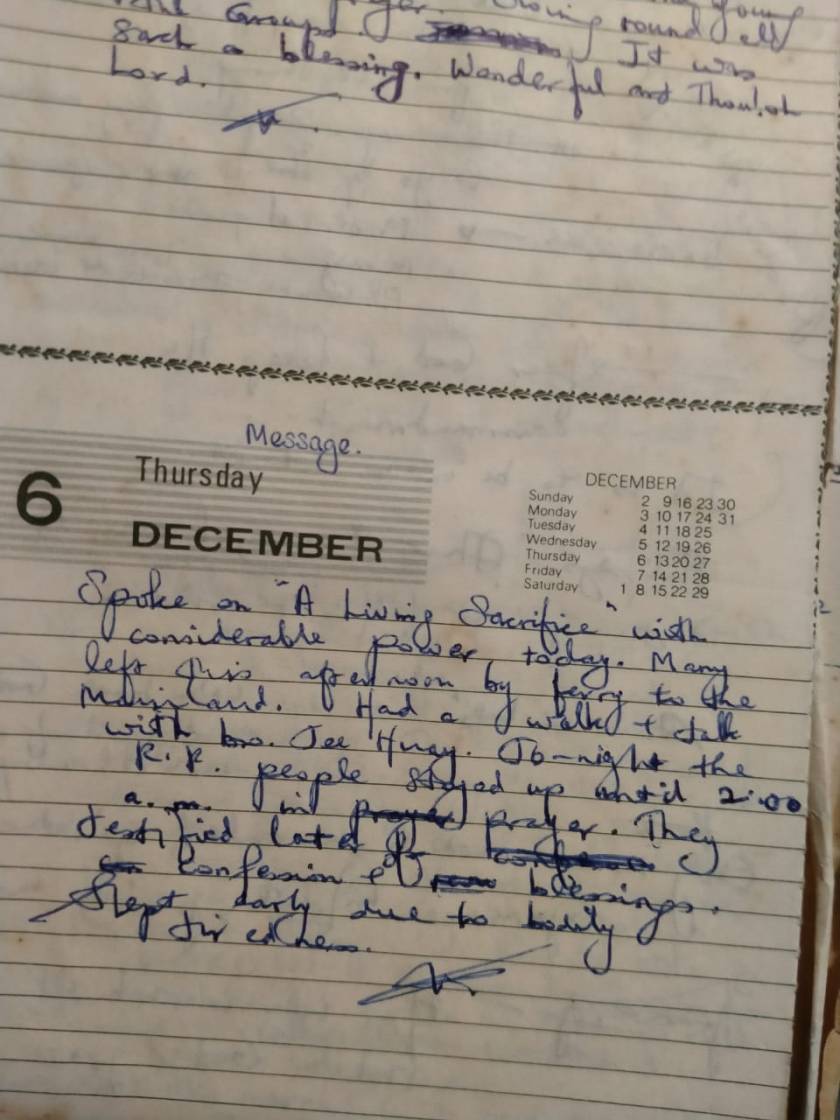 Groups. round all
Such a blessing. It was
Lord. Wonderful and
Message.
6
Thursday
DECEMBER
DECEMBER
Sunday 2 9 16 23 30
Monday 3 10 17 24 31
Tuesday 4 11 18 25
Wednesday 5 12 19 26
Thursday 6 13 20 27
Friday 7 14 21 28
Saturday 1 8 15 22 29
Spoke on "A Living Sacrifice" with
considerable power today. Many
left this afternoon by ferry to the
Mainland. Had a walk & talk
with bro. Jee Huay. To-night the
R.P. people stayed up until 2:00
a.m. in prayer. They
testified later of
confession & blessings.
Slept early due to bodily
tiredness.